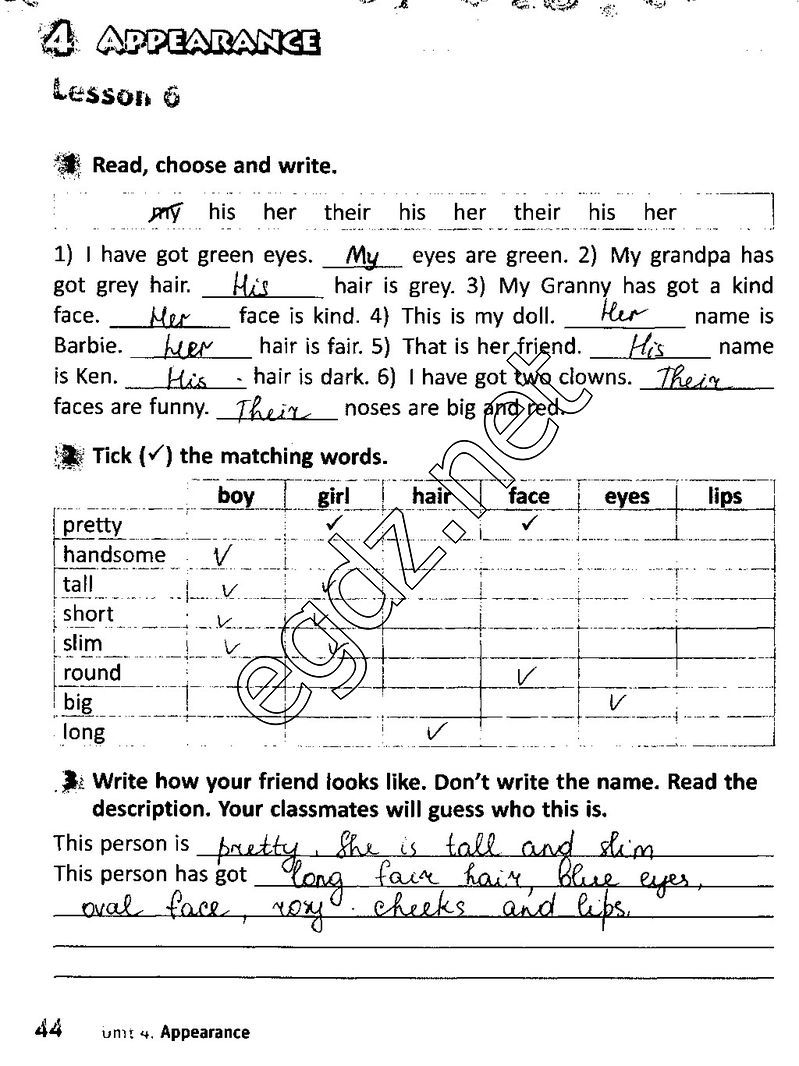 4 APPEARANCE
Lesson 6
1 Read, choose and write.
my his her their his her their his her
1) I have got green eyes. My eyes are green. 2) My grandpa has
got grey hair. His hair is grey. 3) My Granny has got a kind
face. Her face is kind. 4) This is my doll. Her name is
Barbie. Her hair is fair. 5) That is her friend. His name
is Ken. His hair is dark. 6) I have got two clowns. Their
faces are funny. Their noses are big and red.
2 Tick (✓) the matching words.
boy girl hair face eyes lips
pretty ✓ ✓
handsome ✓
tall ✓ ✓
short ✓ ✓
slim ✓ ✓
round ✓
big ✓
long ✓
3 Write how your friend looks like. Don't write the name. Read the
description. Your classmates will guess who this is.
This person is pretty. She is tall and slim
This person has got long fair hair, blue eyes,
oval face, rosy cheeks and lips.
44 Unit 4. Appearance
egdz.net